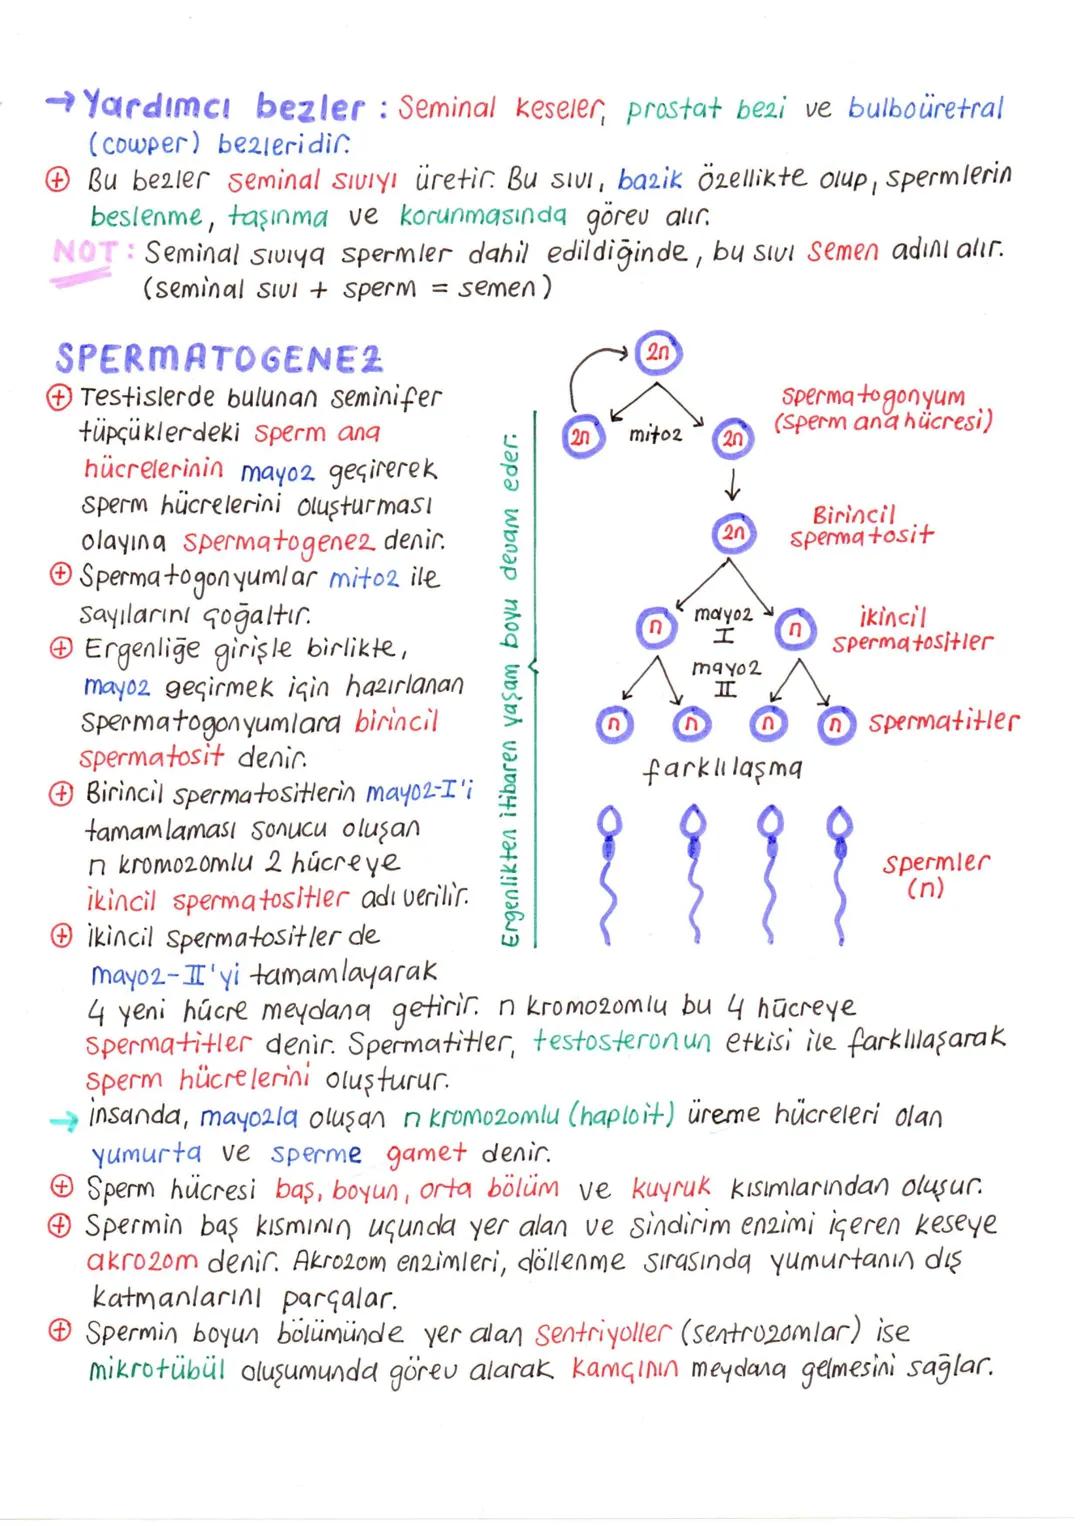 → Yardımcı bezler : Seminal keseler, prostat bezi ve bulboüretral
(cowper) bezleridir.
⊕ Bu bezler seminal sıvıyı üretir. Bu sıvı, bazik özellikte olup, spermlerin
beslenme, taşınma ve korunmasında görev alır.
NOT : Seminal sıvıya spermler dahil edildiğinde, bu sıvı semen adını alır.
(seminal sıvı + sperm = semen)
SPERMATOGENEZ
⊕ Testislerde bulunan seminifer
tüpçüklerdeki sperm ana
hücrelerinin mayoz geçirerek
sperm hücrelerini oluşturması
olayına spermatogenez denir.
⊕ Spermatogonyumlar mitoz ile
sayılarını çoğaltır.
⊕ Ergenliğe girişle birlikte,
mayoz geçirmek için hazırlanan
spermatogonyumlara birincil
spermatosit denir.
⊕ Birincil spermatositlerin mayoz-I'i
tamamlaması sonucu oluşan
n kromozomlu 2 hücreye
ikincil spermatositler adı verilir.
⊕ İkincil spermatositler de
mayoz-II'yi tamamlayarak
4 yeni hücre meydana getirir. n kromozomlu bu 4 hücreye
spermatitler denir. Spermatitler, testosteronun etkisi ile farklılaşarak
sperm hücrelerini oluşturur.
Ergenlikten itibaren yaşam boyu devam eder.
2n
2n mitoz 2n
spermatogonyum
(sperm ana hücresi)
2n
Birincil
spermatosit
n mayoz I n
ikincil
spermatositler
mayoz II
n n n n spermatitler
farklılaşma
spermler
(n)
→ insanda, mayozla oluşan n kromozomlu (haploit) üreme hücreleri olan
yumurta ve sperme gamet denir.
⊕ Sperm hücresi baş, boyun, orta bölüm ve kuyruk kısımlarından oluşur.
⊕ Spermin baş kısmının uçunda yer alan ve sindirim enzimi içeren keseye
akrozom denir. Akrozom enzimleri, döllenme sırasında yumurtanın dış
katmanlarını parçalar.
⊕ Spermin boyun bölümünde yer alan sentriyoller (sentrozomlar) ise
mikrotübül oluşumunda görev alarak kamçının meydana gelmesini sağlar.